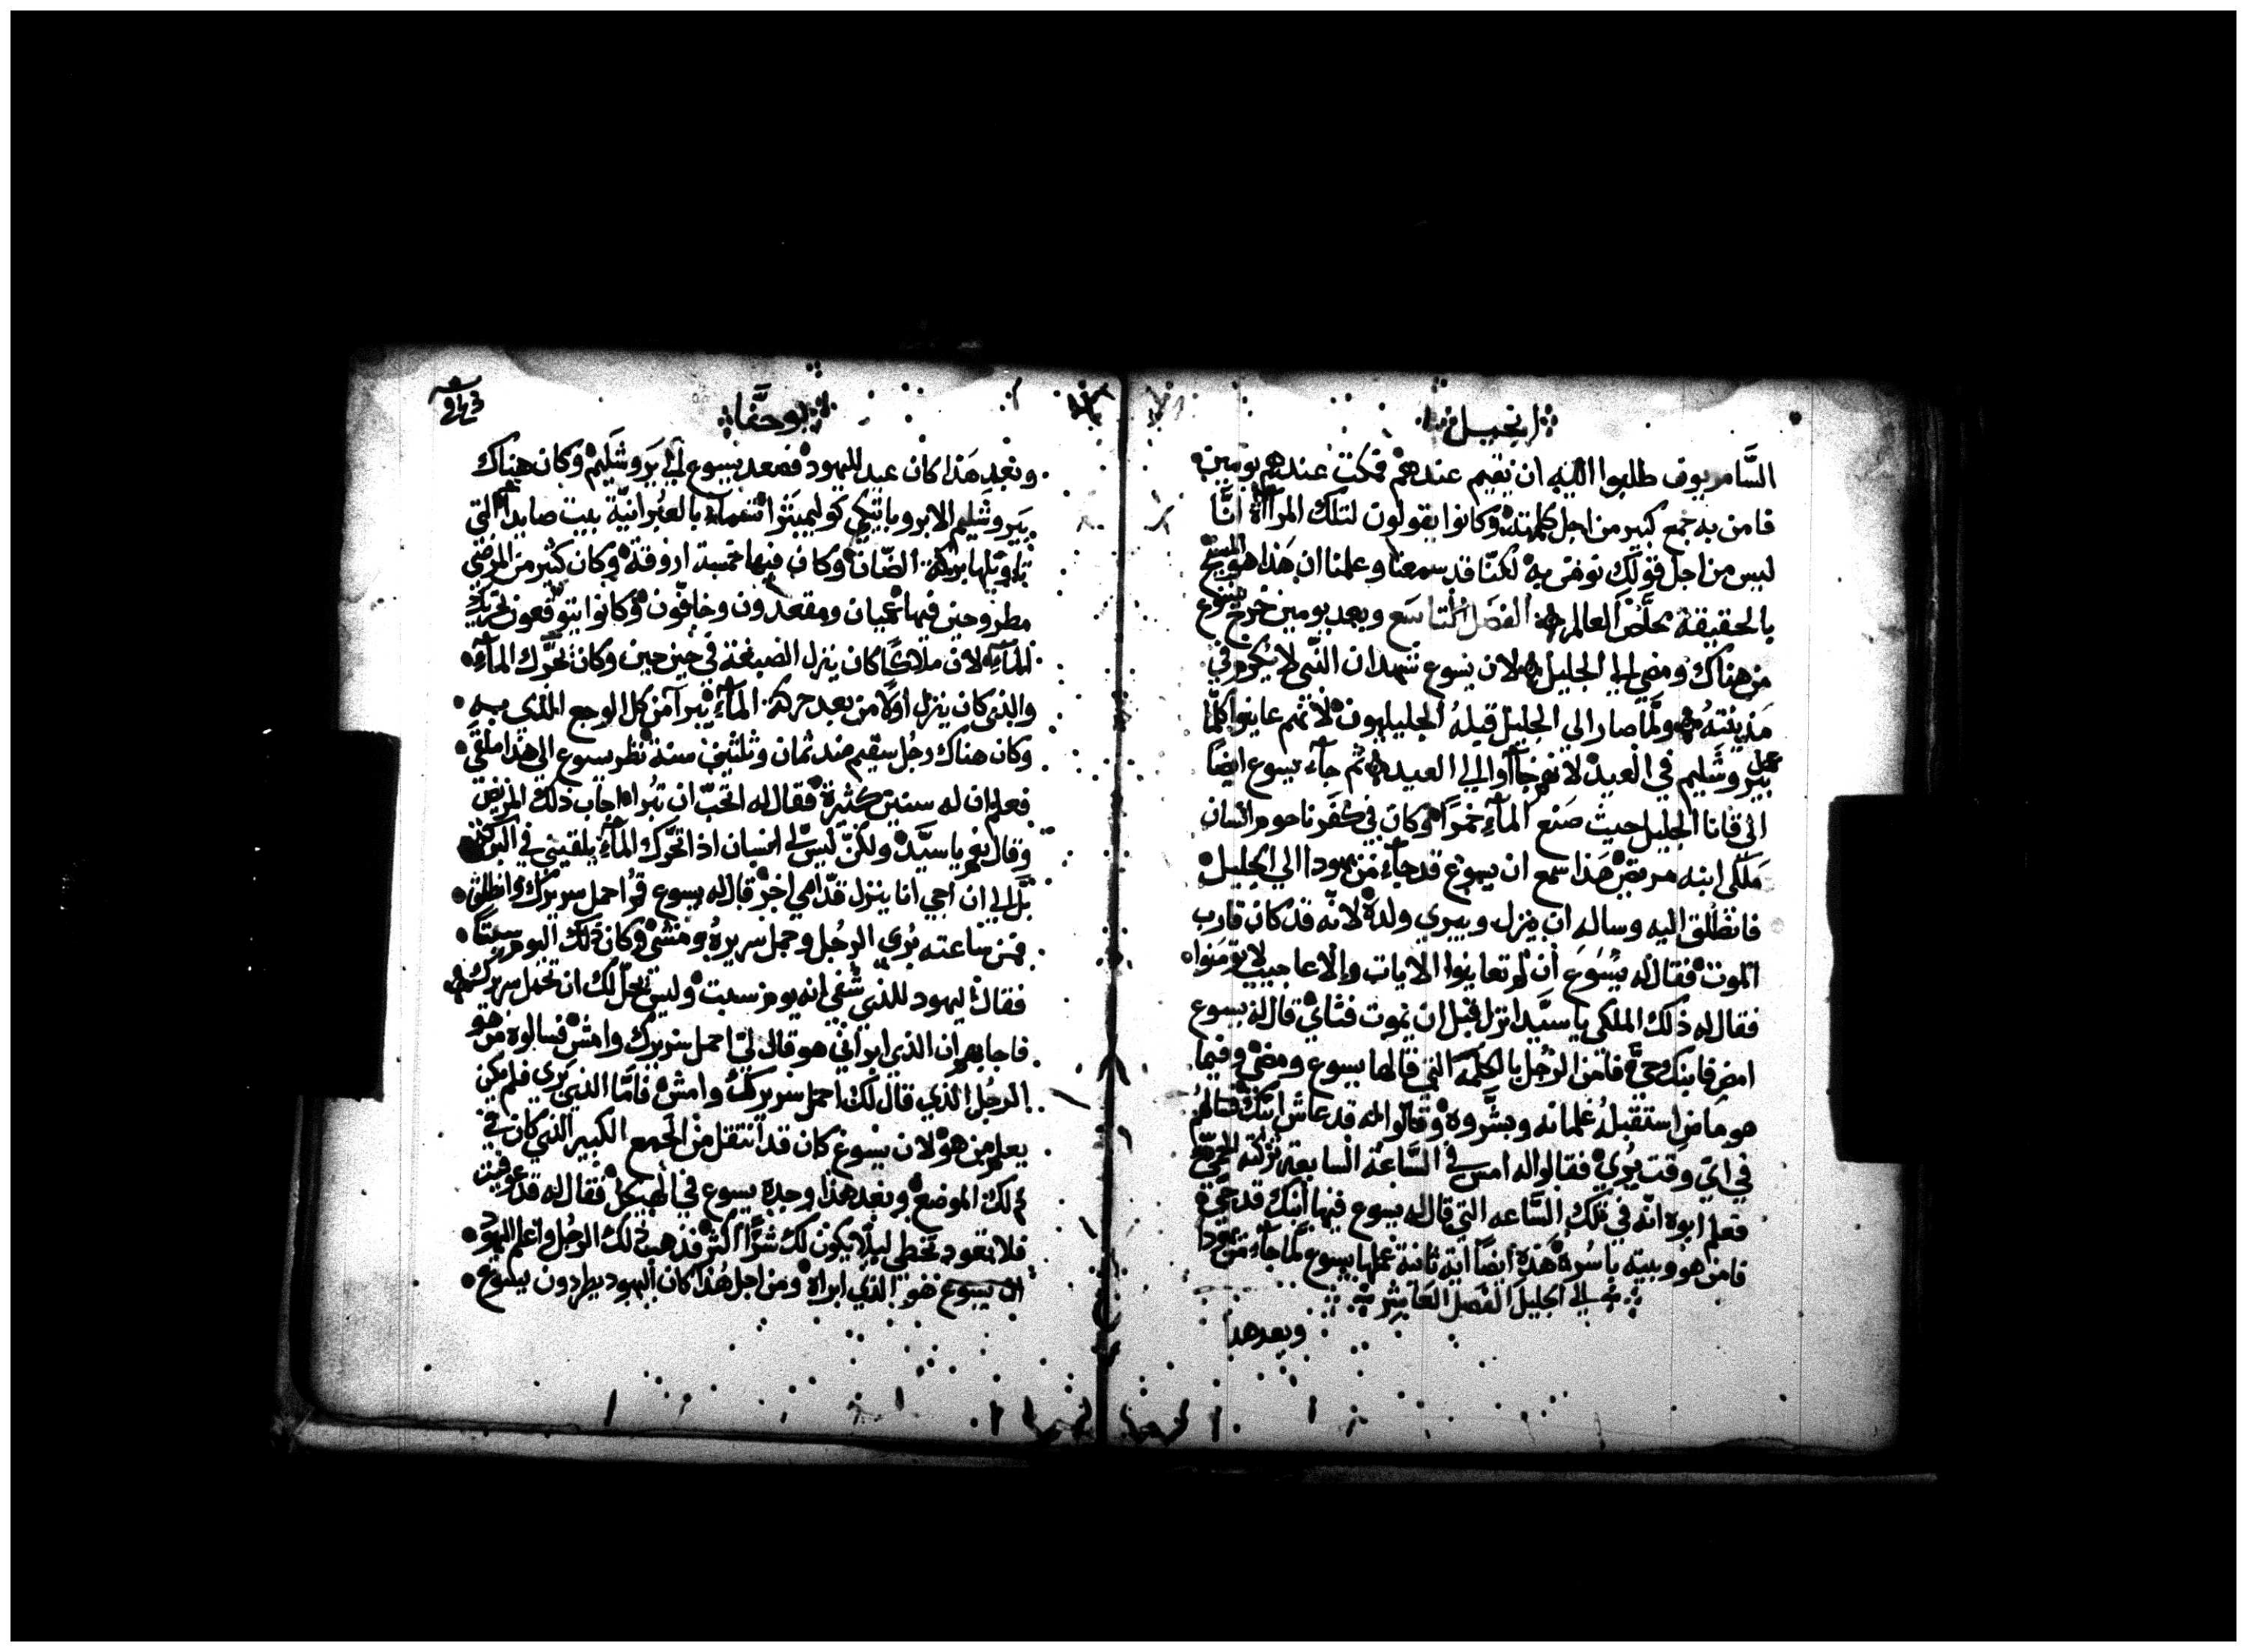 انجيل
السَّامريون طلبوا اليه ان يقيم عندهم فمكث عندهم يومين
فامن به جمع كبير من اجل كلمته وكانوا يقولون لتلك المرآة انَّا
ليس من اجل قولك نومن به لكنّا قد سمعنا وعلمنا ان هذا هو المسيح
بالحقيقة مخلّص العالم الفصل التاسع وبعد يومين خرج يسوع
من هناك ومضي الي الجليل لان يسوع شهد ان النبي لا يكرم في
مدينته ولمّا صار الى الجليل قبله الجليليون لانهم عاينوا كلّما
عمل بيروشليم في العيد لانهم جآوا الي العيد ثم جآء يسوع ايضًا
الى قانا الجليل حيث صنع المآء خمرًا وكان في كفرناحوم انسان
ملكى ابنه مريض هذا سمع ان يسوع قد جآء من يهودا الي الجليل
فانطلق اليه وساله ان ينزل ويبري ولده لانّه قد كان قارب
الموت فقال له يسوع ان لم تعاينوا الايات والاعاجيب لا تومنوا
فقال له ذلك الملكي يا سيّد انزل قبل ان يموت فتاي قال له يسوع
امض فابنك حيّ فامن الرجل بالكلمة التي قالها يسوع ومضى وفيما
هو ماض استقبله غلمانه وبشّروه وقالوا له قد عاش ابنك فسالهم
في ايّ وقت بُري فقالوا له امس في السّاعة السابعة تركته الحمّى
فعلم ابوه انّه في تلك السّاعه التي قال له يسوع فيها ابنك قد حيي
فامن هو وبيته باسره هذه ايضًا اية ثانية عملها يسوع لمّا جآء من يهودا
الي الجليل الفصل العاشر
وبعد هدا
يوحنّا
وبعد هذا كان عيد لليهود فصعد يسوع الى يروشليم وكان هناك
بيروشليم الابروباتيكي كوليمبيثرا تسماه بالعبرانيّة بيت صايدا التي
تاويلها بركة الضان وكان فيها خمسة اروقة وكان كثير من المرضى
مطروحين فيها عميان ومقعدون وجافّون وكانوا يتوقعون تحريك
المآء لان ملاكًا كان ينزل الصبغة في حين حين وكان يحرّك المآء
والذي كان ينزل اوّلًا من بعد حركة المآء يبرآ من كل الوجع الذي به
وكان هناك رجل سقيم منذ ثمان وثلثين سنة نظر يسوع الى هذا ملقى
فعلم ان له سنين كثيرة فقال له اتحبّ ان تبراه اجاب ذلك المريض
وقال نعم يا سيّد ولكن ليس لي انسان اذا تحرّك المآء يلقيني في البركة
بل الى ان اجي انا ينزل قدّامي اخر قال له يسوع قم احمل سريرك وانطلق
فمن ساعته بُري الرجُل وحمل سريره ومشى وكان ذلك اليوم سبتًا
فقال اليهود للذي شُفى انه يوم سبت وليس يحلّ لك ان تحمل سريرك
فاجابهم ان الذي ابراني هو قال لي احمل سريرك وامش فسالوه من هو
الرجُل الذي قال لك احمل سريرك وامش فامّا الذي بري فلم يكن
يعلم من هو لان يسوع كان قد انتقل من الجمع الكبير الذي كان في
ذلك الموضع وبعد هذا وجده يسوع في الهيكل فقال له قد عوفيت
فلا تعود تخطي ليلّا يكون لك شرًّا اكثر فذهب ذلك الرجُل واعلم اليهود
ان يسوع هو الذي ابراه ومن اجل هذا كان اليهود يطردون يسوع